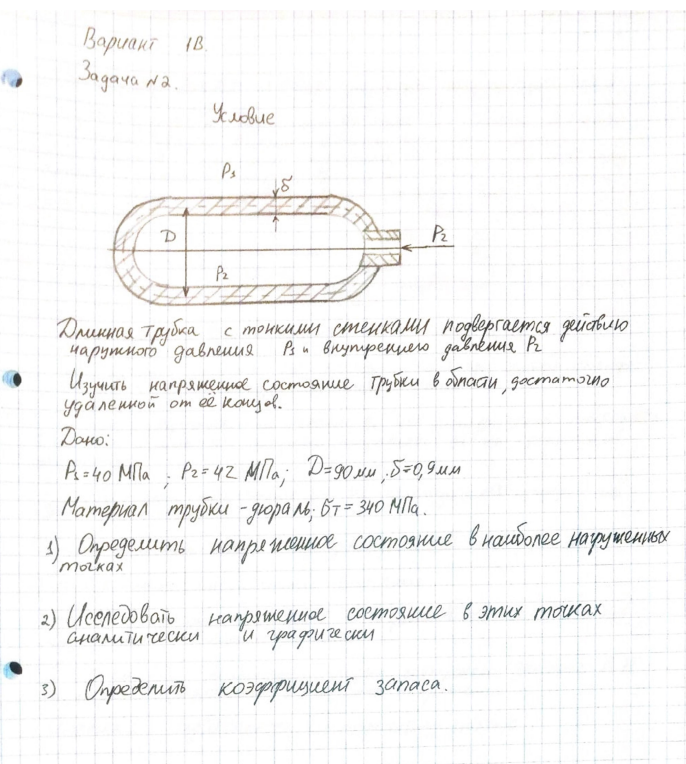 Вариант 1В.
Задача №2.
Условие
P₁
δ
D
P₂
P₂
Длинная трубка с тонкими стенками подвергается действию
наружного давления P₁ и внутреннего давления P₂
Изучить напряженное состояние трубки в области, достаточно
удаленной от её концов.
Дано:
P₁=40 МПа ; P₂=42 МПа; D=90мм, δ=0,9мм
Материал трубки - дюраль; σт=340 МПа.
1) Определить напряженное состояние в наиболее нагруженных
точках
2) Исследовать напряженное состояние в этих точках
аналитически и графически
3) Определить коэффициент запаса.